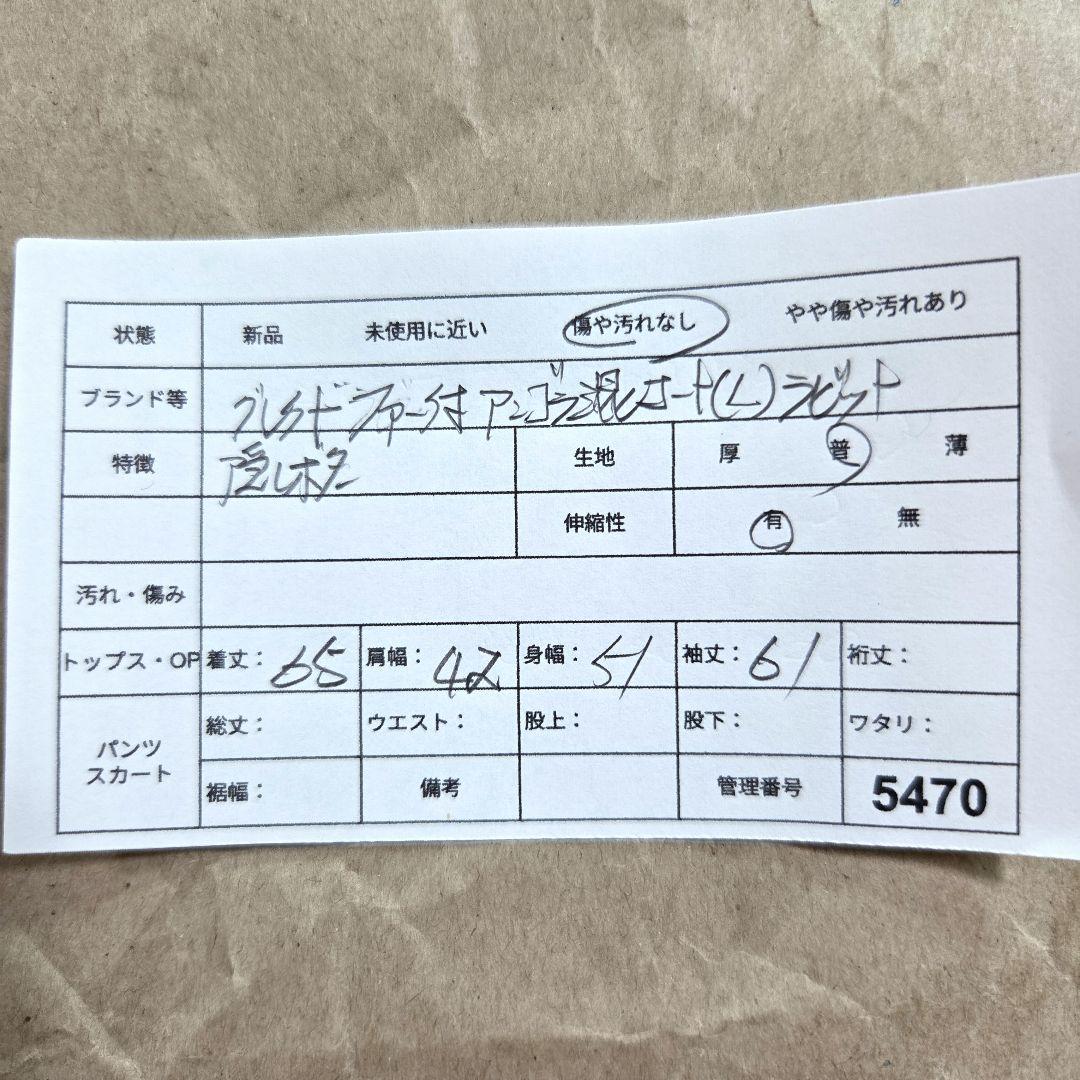 状態 新品 未使用に近い 傷や汚れなし やや傷や汚れあり
ブランド等 ファー付 アンゴラ混コート(L) ラビット
特徴 隠しボタン 生地 厚 普 薄
伸縮性 有 無
汚れ・傷み
トップス・OP 着丈: 65 肩幅: 42 身幅: 51 袖丈: 61 裄丈:
パンツ スカート
総丈: ウエスト: 股上: 股下: ワタリ:
裾幅: 備考 管理番号 5470